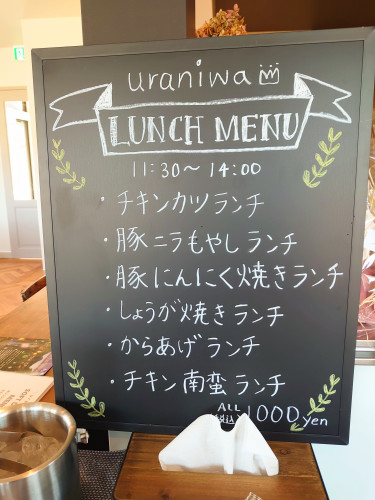 uraniwa
LUNCH MENU
11:30〜14:00
・チキンカツランチ
・豚ニラもやしランチ
・豚にんにく焼きランチ
・しょうが焼きランチ
・からあげランチ
・チキン南蛮ランチ
ALL
税込 1000yen